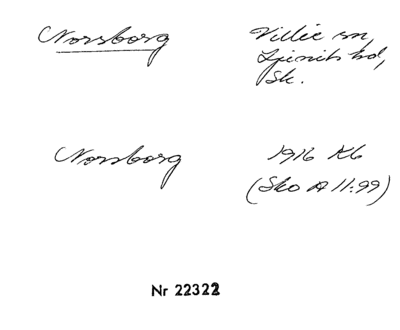 Norsborg Villie sn,
Ljunits hd,
Sk.
Norsborg 1916 Kb
(Sko A 11:99)
Nr 22322